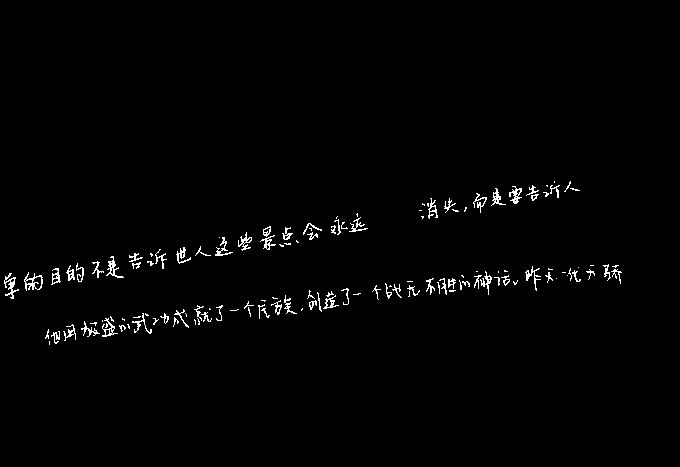 单的目的不是告诉世人这些景点会永远 消失,而是要告诉人
他用极盛的武功成就了一个民族,创造了一个战无不胜的神话。昨天一代天骄